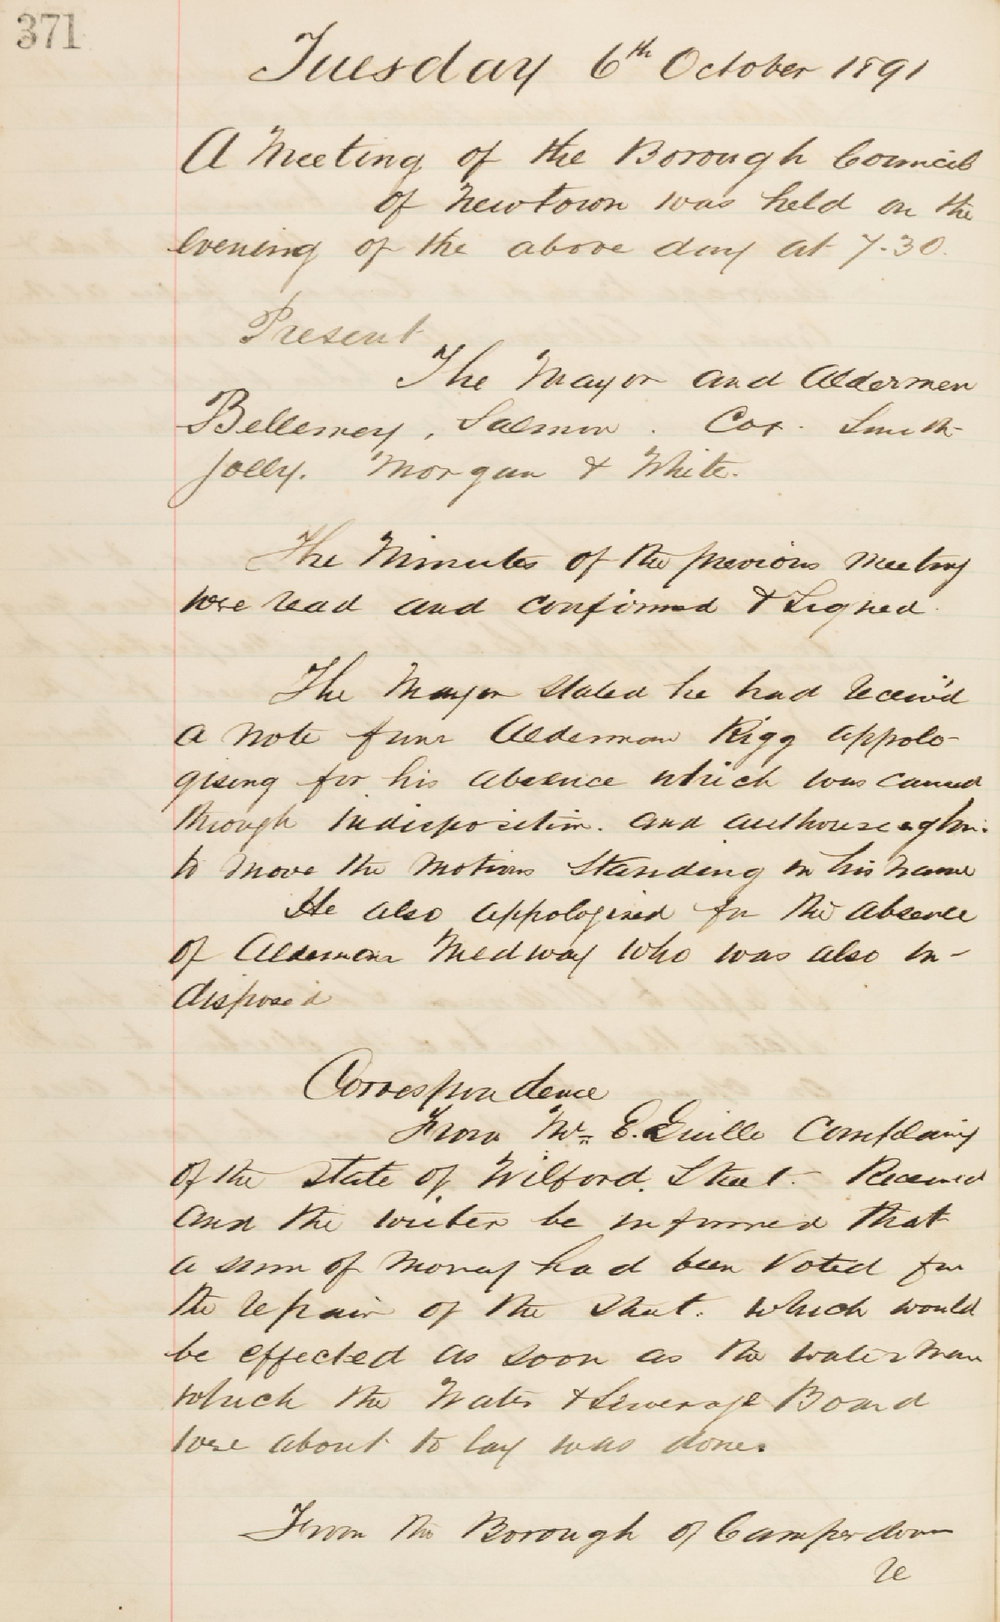 371
Tuesday 6th October 1891
A Meeting of the Borough Council
of Newtown was held on the
evening of the above day at 7.30.
Present
The Mayor and Aldermen
Bellemey, Salmon. Cox. Smith
Jolly. Morgan & White.
The Minutes of the previous meeting
were read and confirmed & Signed.
The Mayor stated he had receiv'd
a note from Alderman Rigg appolo-
gising for his absence which was caused
through indisposition. and authouriseing him
to move the motions standing in his name
He also appologised for the absence
of Alderman Medway who was also in-
dispose'd
Correspondence
From Mr. E. Guille Complaing
of the state of Wilford. Street. Received
and the writer be informed that
a sum of money had been voted for
the repair of the Street. which would
be effected as soon as the water main
which the Water & Sewerage Board
were about to lay was done.
From the Borough of Camperdown
re